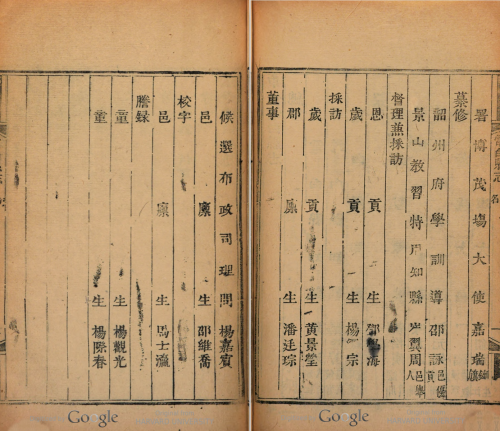 署博茂場大使嘉瑞
纂修
韶州府學訓導邵詠
景山教習特用知縣
周
督理兼採訪
恩貢生
歲貢生楊宗
採訪
歲貢生黃景瑩
郡廩生潘廷琮
董事
候選布政司理問楊嘉賓
邑廩生邵維喬
校字
邑廩生馬士瀛
謄錄
童生楊觀光
童生楊際春
Google
Google